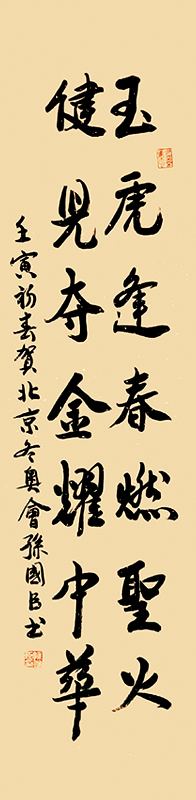 玉虎逢春燃聖火
健兒夺金耀中華
壬寅初春賀北京冬奥會孫國臣书